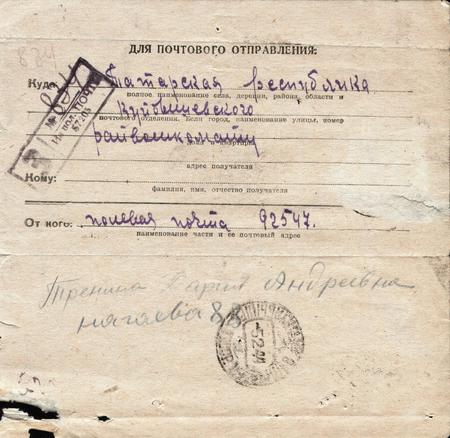 834
ДЛЯ ПОЧТОВОГО ОТПРАВЛЕНИЯ:
Куда: Татарская республика
полное наименование села, деревни, района, области и
Куйбышевского
почтового отделения. Если город, наименование улицы, номер
райвоенкомату
дома и квартиры
адрес получателя
Кому:
фамилия, имя, отчество получателя
От кого: полевая почта 92547.
наименование части и ее почтовый адрес
Андреевна
нагаева 88
5 2 44